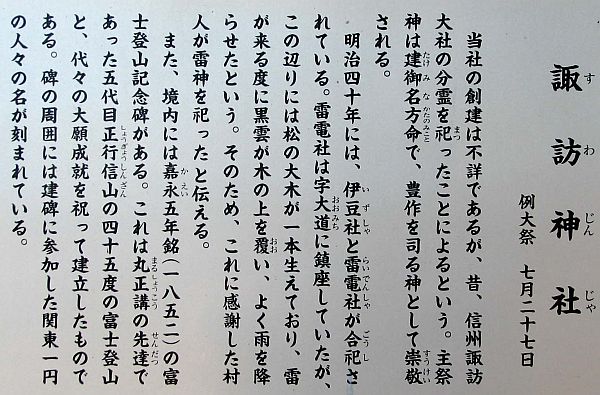 諏訪神社
すわじんじゃ
例大祭　七月二十七日
当社の創建は不詳であるが、昔、信州諏訪
大社の分霊を祀ったことによるという。主祭
まつ
神は建御名方命で、豊作を司る神として崇敬
たけみなかたのみこと
すうけい
される。
明治四十年には、伊豆社と雷電社が合祀さ
いずしゃ
らいでんしゃ
ごうし
れている。雷電社は字大道に鎮座していたが、
おおみち
この辺りには松の大木が一本生えており、雷
が来る度に黒雲が木の上を覆い、よく雨を降
おお
らせたという。そのため、これに感謝した村
人が雷神を祀ったと伝える。
また、境内には嘉永五年銘（一八五二）の富
かえい
士登山記念碑がある。これは丸正講の先達で
まるしょうこう
せんだつ
あった五代目正行信山の四十五度の富士登山
しょうぎょうしんざん
と、代々の大願成就を祝って建立したもので
ある。碑の周囲には建碑に参加した関東一円
の人々の名が刻まれている。